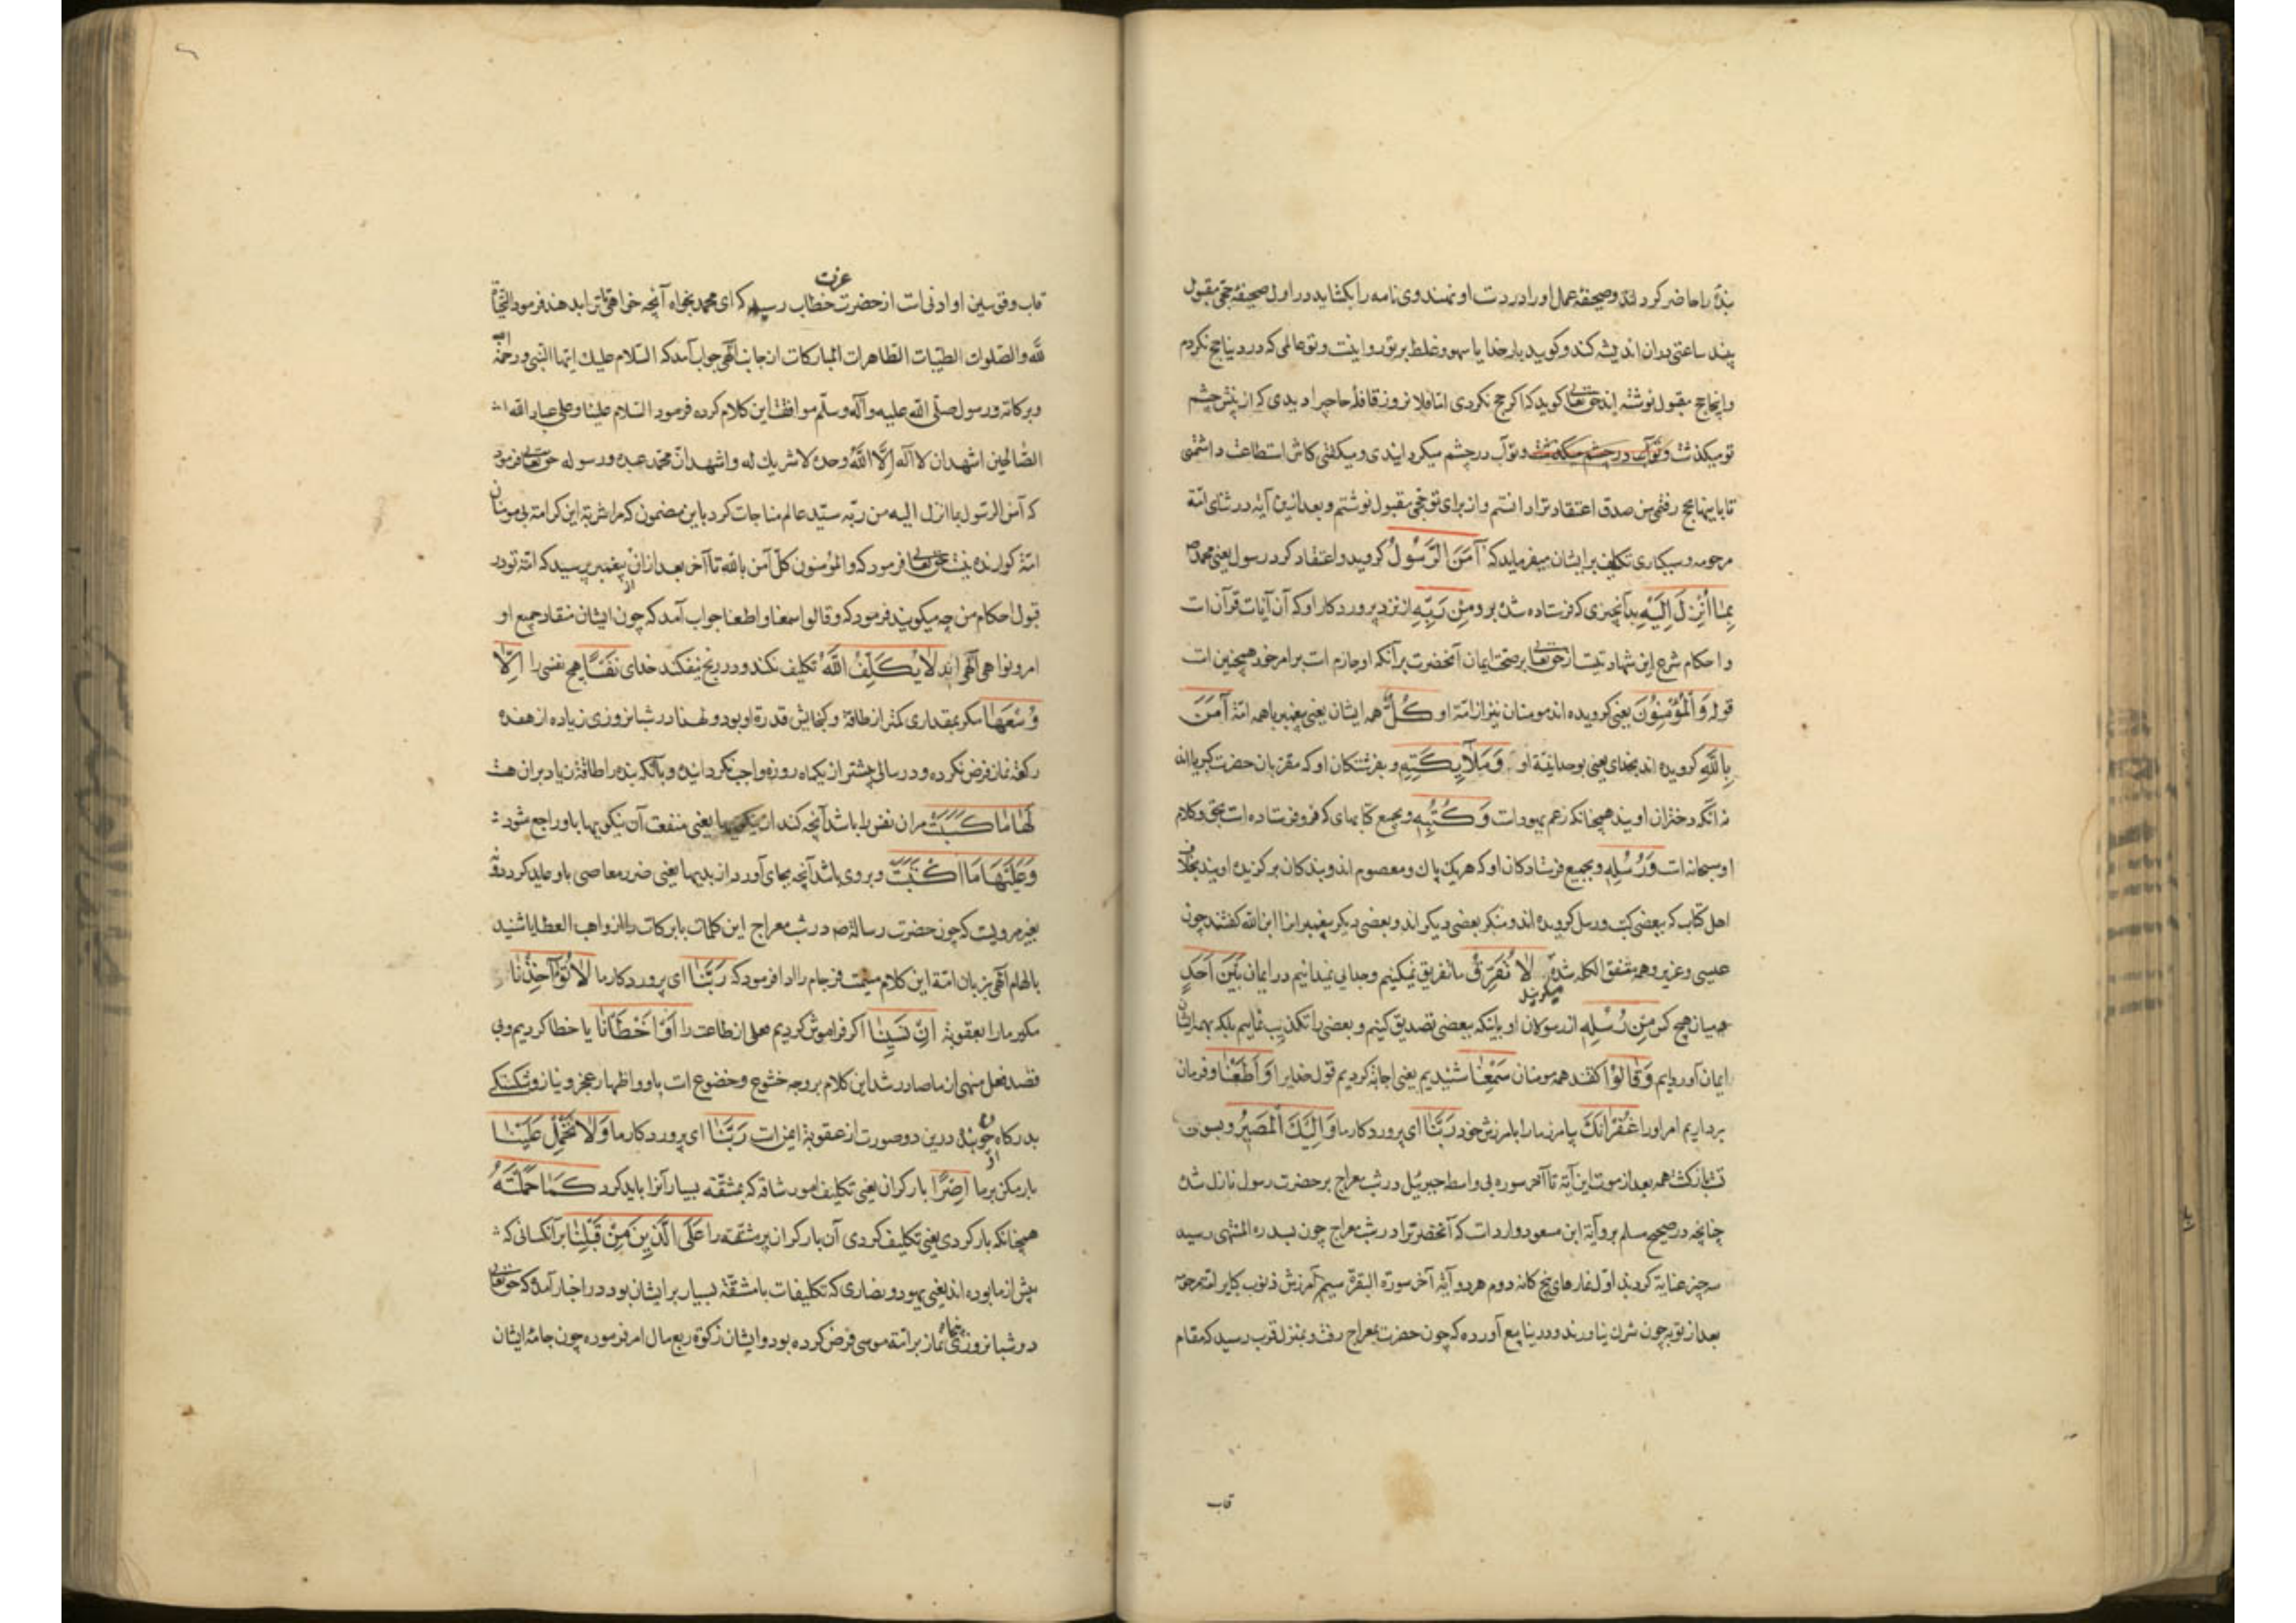 بنده را حاضر کردانند و صحیفهٔ عمل او را در دست او نهند و وی نامه را بکشاید در اول صحیفه حجّی مقبول
بیند ساعتی دران اندیشه کند و کوید بار خدایا سهو و غلط بر تو روا نیست و تو عالمی که در دنیا حج نکردم
و اینجا حج مقبول نوشته اند حق تعالی کوید که اکر حج نکردی اما فلان روز قافلهٔ حاجیرا دیدی که از پیش چشم
تو میکذشت و تو آب در چشم میکردانیدی و میکفتی کاش استطاعت داشتمی
تا با اینها بحج رفتمی من صدق اعتقاد ترا دانستم و از برای تو حجّی مقبول نوشتم و بعد ازین آیة در شان امّة
مرحومه و سبکباری تکلیف بر ایشان میفرماید که آمَنَ الرَّسُولُ کروید و اعتقاد کرد رسول یعنی محمد ص
بِمَا أُنْزِلَ إِلَيْهِ بدآنچیزی که فرستاده شده برو مِنْ رَبِّهِ از نزد پروردکار او که آن آیات قرآن است
و احکام شرع این شهادتیست از حق تعالی بر صحّت ایمان آنحضرت بر آنکه او جازم است بر امر خود همچنین است
قوله وَالْمُؤْمِنُونَ یعنی کرویده اند مومنان نیز از امّة او كُلٌّ همه ایشان یعنی پیغمبر با همه امّة آمَنَ
بِاللَّهِ کرویده اند بخدای یعنی بوحدانیّة او وَمَلَائِكَتِهِ و بفرشتکان او که مقرّبان حضرت کبریا اند
نه آنکه دختران اویند همچنانکه زعم یهود است وَكُتُبِهِ و بجمیع کتابهای که فرو فرستاده است بحق و کلام
او سبحانه است وَرُسُلِهِ و بجمیع فرستادکان او که هریک پاک و معصوم اند و بندکان برکزیده اویند بخلاف
اهل کتاب که ببعضی کتب و رسل کرویده اند و منکر بعضی دیکر اند و بعضی دیکر پیغمبرانرا ابن الله کفتند چون
عیسی و عزیر و همه متفق الکلمه شده میکویند لَا نُفَرِّقُ ما تفریق نمیکنیم و جدایی نمیدانیم در ایمان بَيْنَ أَحَدٍ
میان هیچ کس مِنْ رُسُلِهِ از رسولان او بانکه ببعضی تصدیق کنیم و بعضی را تکذیب نماییم بلکه بهمه ایشان
ایمان آورده ایم وَقَالُوا کفتند همه مومنان سَمِعْنَا شنیدیم یعنی اجابة کردیم قول خدایرا وَأَطَعْنَا و فرمان
برداریم امر اورا غُفْرَانَكَ بیامرز مارا بامرزش خود رَبَّنَا ای پروردکار ما وَإِلَيْكَ الْمَصِيرُ و بسوی
تست بازکشت همه بعد از موت این آیة تا آخر سوره بی واسطه جبرئیل در شب معراج بر حضرت رسول نازل شده
چنانچه در صحیح مسلم بروایة ابن مسعود وارد است که آنحضرترا در شب معراج چون بسدرة المنتهی رسید
سه چیز عنایة کردند اوّل نمازهای پنج کانه دوم هر دو آیة آخر سورة البقرة سیم آمرزش ذنوب کبایر امّة مرحومه
بعد از توبه چون شرک نیاورند و در ینابیع آورده که چون حضرت بمعراج رفت و بمنزل قرب رسید که مقام
قاب
قاب قوسین او ادنی است از حضرت عزت خطاب رسید که ای محمد بخواه آنچه خواهی تا ترا بدهند فرمود التحیّاة
للّه والصّلوات الطیّبات الطّاهرات المبارکات از جانب الهی جواب آمد که السّلام علیک ایّها النّبی و رحمة الله
و برکاته و رسول صلّی الله علیه و آله و سلّم موافقت این کلام کرده فرمود السّلام علینا و علی عباد الله
الصّالحین اشهد ان لا اله الّا اللّه وحده لا شریک له و اشهد انّ محمّد عبده و رسوله حق تعالی فرمود
که آمن الرّسول بما انزل الیه من ربّه سیّد عالم مناجات کرد باین مضمون که مرا شربة این کرامة بی مومنان
امّة کوارنده نیست حق تعالی فرمود که والمؤمنون کلّ آمن باللّه تا آخر بعد ازان از پیغمبر پرسید که امّة تو در
قبول احکام من چه میکویند فرمود که و قالوا سمعنا و اطعنا جواب آمد که چون ایشان منقاد جمیع او
امر و نواهی الهی اند لَا يُكَلِّفُ اللَّهُ تکلیف نکند و در رنج نیفکند خدای نَفْسًا هیچ نفسی را إِلَّا
وُسْعَهَا مکر بمقداری کمتر از طاقة و کنجایش قدرة او بود و لهذا در شبانروزی زیاده از هفده
رکعة نماز فرض نکرده و در سالی بیشتر از یکماه روزه واجب نکردانیده و بآنکه بنده را طاقة زیاد بران هست
لَهَا مَا كَسَبَتْ مران نفس را باشد آنچه کند از نیکویها یعنی منفعت آن نیکویها باو راجع شود
وَعَلَيْهَا مَا اكْتَسَبَتْ و بر وی باشد آنچه بجای آورد از بدیها یعنی ضرر معاصی باو عاید کردد نه
بغیر مرویست که چون حضرت رسالة ص در شب معراج این کلمات با برکات را از واهب العطایا شنید
بالهام الهی بزبان امّة این کلام میمنت فرجام را ادا فرمود که رَبَّنَا ای پروردکار ما لَا تُؤَاخِذْنَا
مکیر مارا بعقوبة إِنْ نَسِينَا اکر فراموش کردیم عملی از طاعت را أَوْ أَخْطَأْنَا یا خطا کردیم و بی
قصد فعل منهی از ما صادر شد این کلام بر وجه خشوع و خضوع است باو و اظهار عجز و نیاز و شکستکی
بدرکاه او چون بنده درین دو صورت از عقوبة ایمن است رَبَّنَا ای پروردکار ما وَلَا تَحْمِلْ عَلَيْنَا
بار مکن بر ما إِصْرًا بار کران یعنی تکلیف امور شاقه که بمشقّه بسیار آنرا باید کرد كَمَا حَمَلْتَهُ
همچنانکه بار کردی یعنی تکلیف کردی آن بار کران پر مشقّه را عَلَى الَّذِينَ مِنْ قَبْلِنَا بر آنکسانی که
پیش از ما بوده اند یعنی یهود و نصاری که تکلیفات با مشقّة بسیار بر ایشان بود در اخبار آمده که حق تعالی
در شبانروزی پنجاه نماز بر امّة موسی فرض کرده بود و ایشان زکوة ربع مال امر فرموده چون جامهٔ ایشان